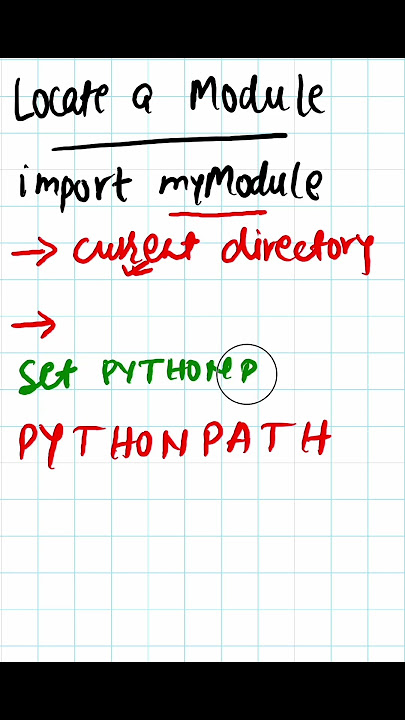 Locate a Module
import myModule
→ current directory
→
Set PYTHONP
PYTHONPATH